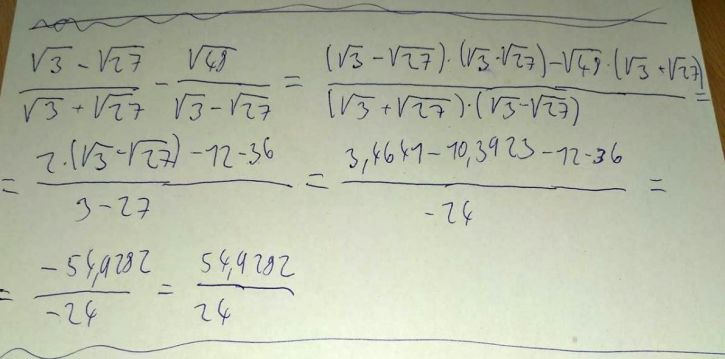 (√3 - √27)/(√3 + √27) - √48/(√3 - √27) = ((√3 - √27)·(√3 - √27) - √48·(√3 + √27))/((√3 + √27)·(√3 - √27)) =
= (2·(√3 - √27) - 12 - 36)/(3 - 27) = (3,4641 - 10,3923 - 12 - 36)/(-24) =
= (-54,9282)/(-24) = 54,9282/24